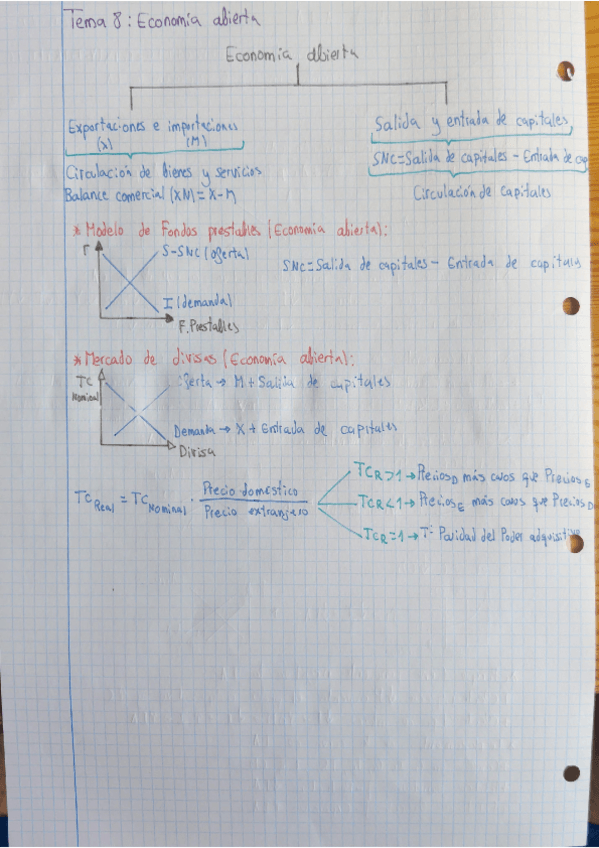 Tema 8: Economía abierta
Economía abierta
Exportaciones e importaciones
(X) (M)
Circulación de bienes y servicios
Balance comercial (XN) = X-M
Salida y entrada de capitales
SNC=Salida de capitales - Entrada de cap
Circulación de capitales
* Modelo de Fondos prestables (Economía abierta):
r
S-SNC (oferta)
I (demanda)
F. Prestables
SNC=Salida de capitales - Entrada de capitals
* Mercado de divisas (Economía abierta):
TC
Nominal
Oferta → M + Salida de capitales
Demanda → X + Entrada de capitales
Divisa
TC Real = TC Nominal · Precio doméstico / Precio extranjero
TCR>1 → Precios D más caros que Precios E
TCR<1 → Precios E más caros que Precios D
TCR=1 → Tª Paridad del Poder adquisitivo